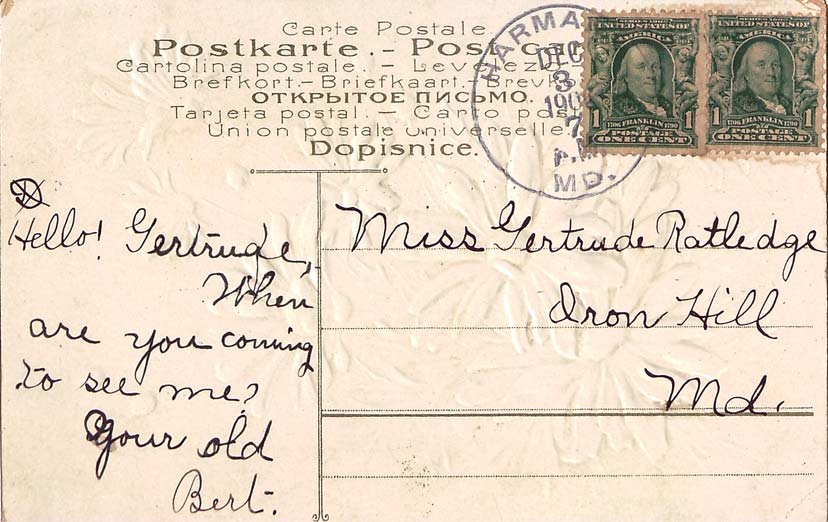 Carte Postale.
Postkarte. - Post
Cartolina postale. -
Brefkort.- Briefkaart.-
ОТКРЫТОЕ ПИСЬМО.
Tarjeta postal. - Carto
Union postale universelle
Dopisnice.
HARMA
DEC
3
190
7
A.M
MD.
SERIES 1902
UNITED STATES OF
AMERICA
1 1706 FRANKLIN 1790 1
POSTAGE
ONE CENT
SERIES 1902
UNITED STATES OF
AMERICA
1 1706 FRANKLIN 1790 1
POSTAGE
ONE CENT
Hello! Gertrude,
When
are you coming
to see me?
Your old
Bert.
Miss Gertrude Ratledge
Iron Hill
Md.